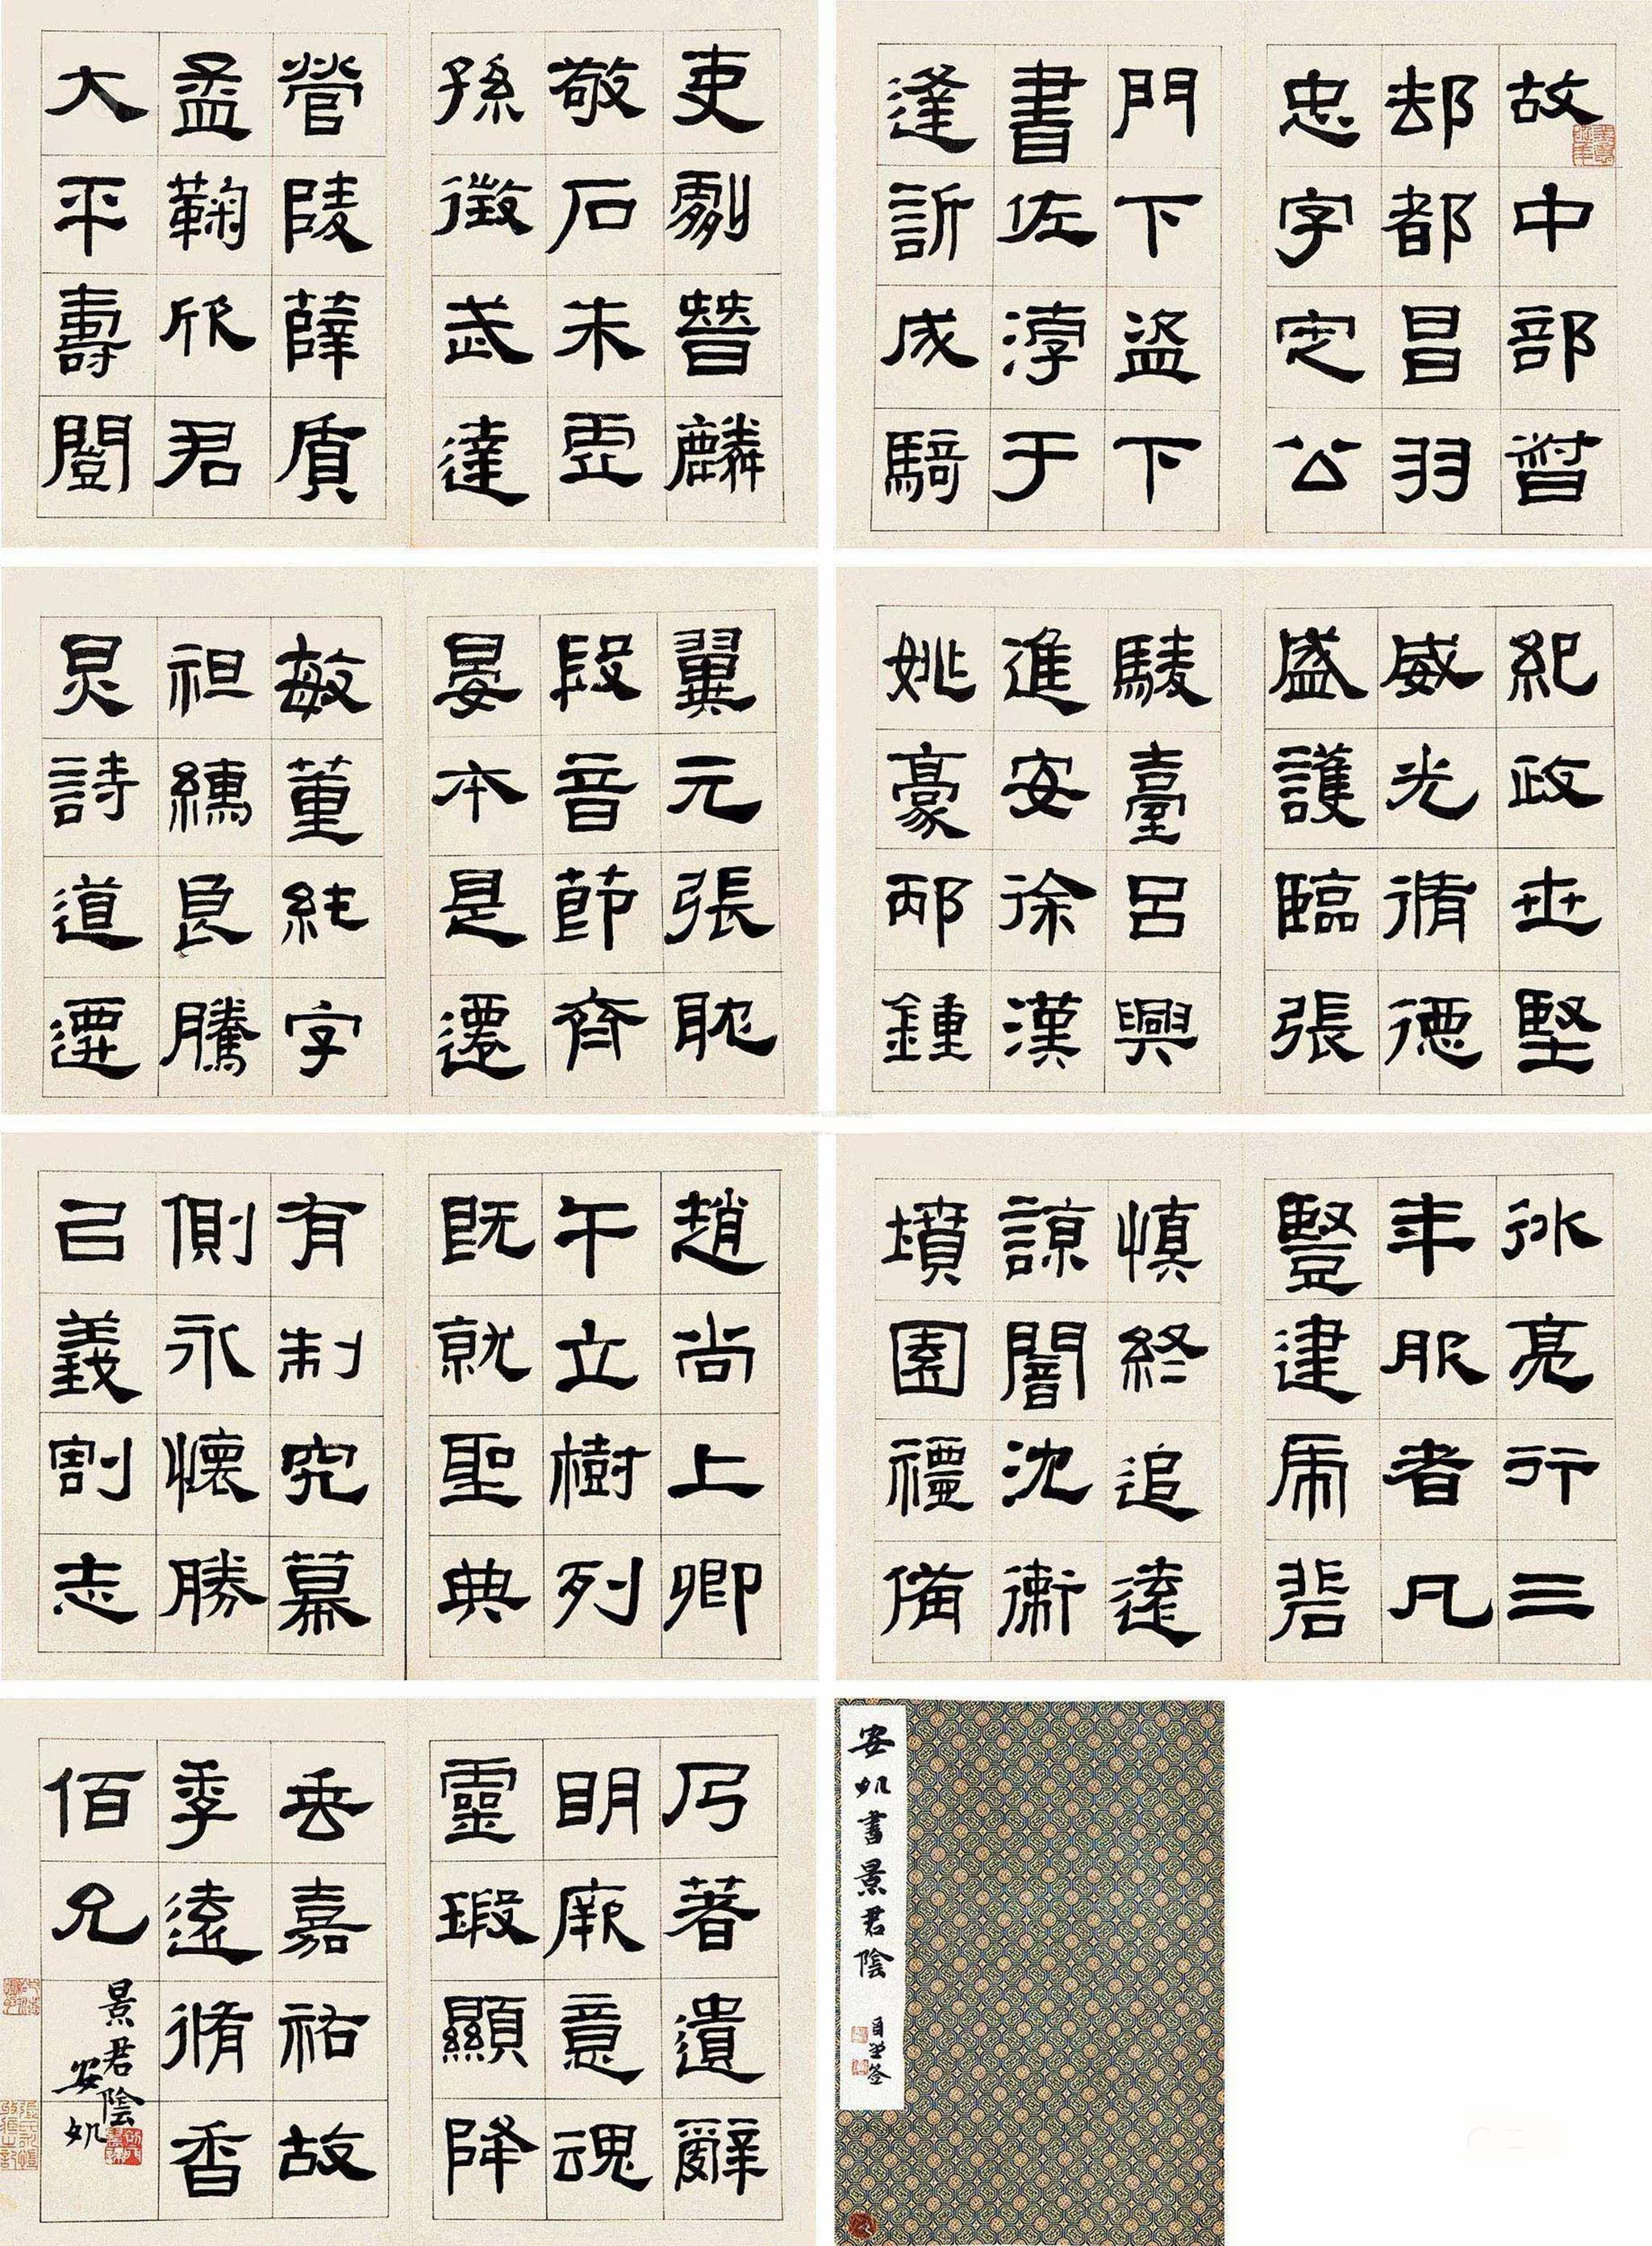 故中部督
郄都昌羽
忠字定公
門下盜下
書佐淳于
逢訢成騎
吏劇晉麟
敬石朱虛
孫徵武達
營陵薛盾
孟鞠欣君
大平壽闓
紀政世堅
威光脩德
盛護臨張
䮚臺呂興
進安徐漢
姚豪邴鍾
翼元張耽
段音節齊
晏本是遷
敏董純字
祖繻良騰
炅詩道遷
冰亮行三
年服者凡
豎建虎碑
慎終追遠
諒闇沈衛
墳園禮備
趙尚上卿
午立樹列
既就聖典
有制究幕
側永懷勝
己義割志
乃著遺辭
明厥意魂
靈瑕顯降
垂嘉祐故
季遠脩香
佰兄
景君陰
安如
安如書景君陰